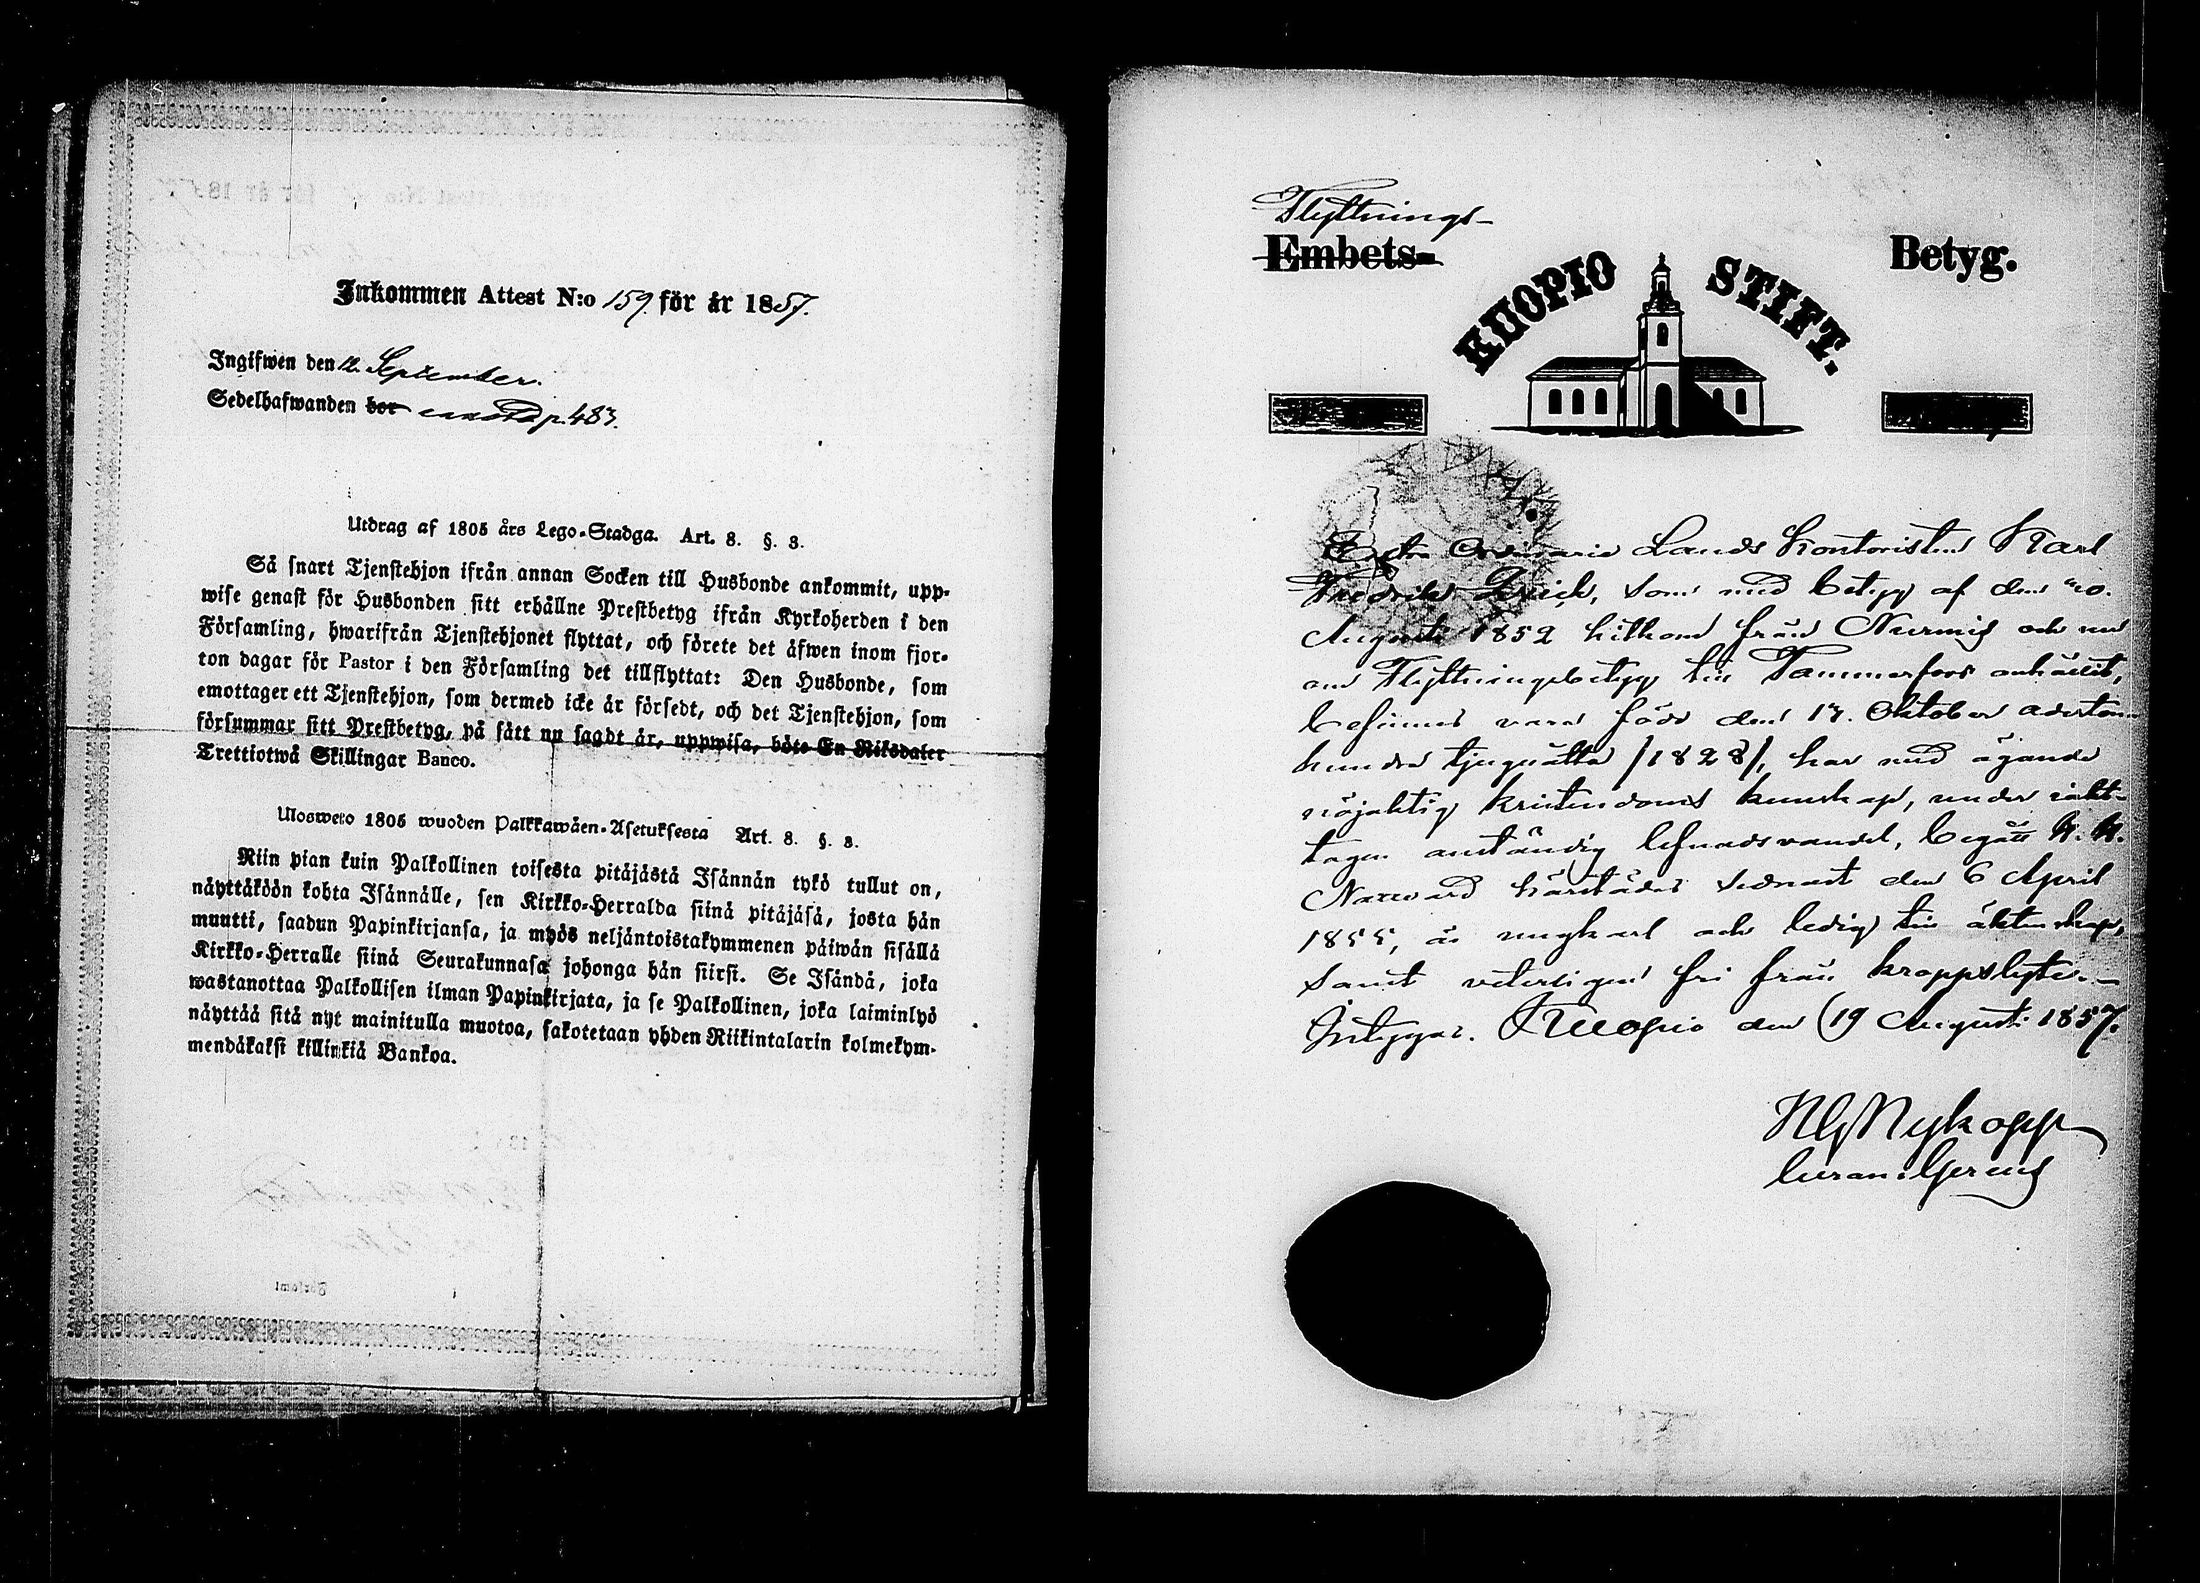 Inkommen Attest N:o 159. för år 1857.
Ingifwen den 12. September.
Sedelhafwanden bor p. 483.
Utdrag af 1805 års Lego-Stadga. Art. 8. §. 3.
Så snart Tjenstehjon ifrån annan Socken till Husbonde ankommit, upp-
wise genast för Husbonden sitt erhållne Prestbetyg ifrån Kyrkoherden i den
Församling, hwarifrån Tjenstehjonet flyttat, och förete det äfwen inom fjor-
ton dagar för Pastor i den Församling det tillflyttat: Den Husbonde, som
emottager ett Tjenstehjon, som dermed icke är försedt, och det Tjenstehjon, som
försummar sitt Prestbetyg, på sätt nu sagdt är, uppwisa, böte En Riksdaler
Trettiotwå Skillingar Banco.
Ulosweto 1805 wuoden Palkkawäen-Asetuksesta Art. 8. §. 3.
Niin pian kuin Palkollinen toisesta pitäjästä Isännän tykö tullut on,
näyttäköön kohta Isännälle, sen Kirkko-Herralda siinä pitäjäsä, josta hän
muutti, saadun Papinkirjansa, ja myös neljäntoistakymmenen päiwän sisällä
Kirkko-Herralle siinä Seurakunnasa johonga hän siirsi. Se Isändä, joka
wastanottaa Palkollisen ilman Papinkirjata, ja se Palkollinen, joka laiminlyö
näyttää sitä nyt mainitulla muotoa, sakotetaan yhden Riikintalarin kolmekym-
mendäkaksi killinkiä Bankoa.
Flyttnings-
Embets- Betyg.
KUOPIO STIFT.
Extra Ordinarie Lands Kontoristen Karl
Fredrik som med betyg af den 20.
Augusti 1852 hitkom från Nurmis och nu
om Flyttningsbetyg till Tammerfors anhållit,
befinnes vara född den 13. Oktober aderton-
hundra tjuguåtta /1828/, har med ägande
nöjaktig kristendoms kunskap, under iakt-
tagen anständig lefnadsvandel, begått H. H.
Nattvard härstädes sednast den 6 April
1855, är ungkarl och ledig till äktenskap,
samt veterligen fri från kroppslyte. –
Intygar. Kuopio den 19 Augusti 1857.
Nykopp